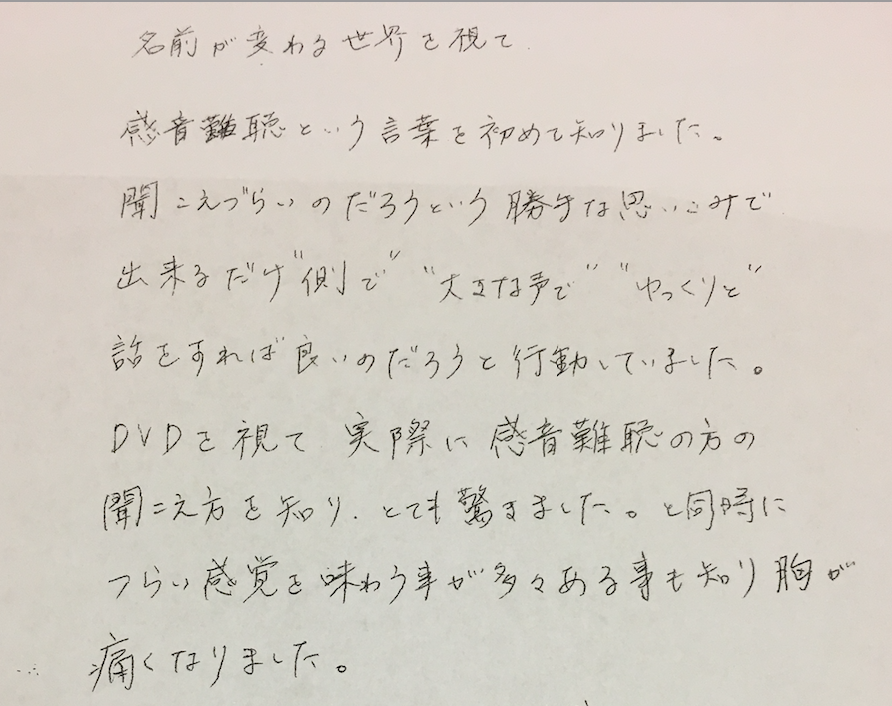 名前が変わる世界を視て
感音難聴という言葉を初めて知りました。
聞こえづらいのだろうという勝手な思いこみで
出来るだけ"側で" "大きな声で" "ゆっくりと"
話をすれば良いのだろうと行動していました。
DVDを視て 実際に感音難聴の方の
聞こえ方を知り、とても驚きました。と同時に
つらい感覚を味わう事が多々ある事も知り胸が
痛くなりました。